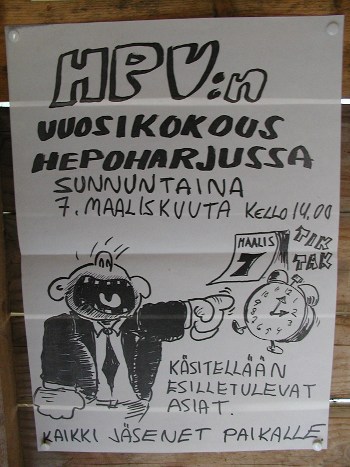 HPV:n
VUOSIKOKOUS
HEPOHARJUSSA
SUNNUNTAINA
7. MAALISKUUTA KELLO 14.00
MAALIS
7
TIK
TAK
KÄSITELLÄÄN
ESILLETULEVAT
ASIAT.
KAIKKI JÄSENET PAIKALLE